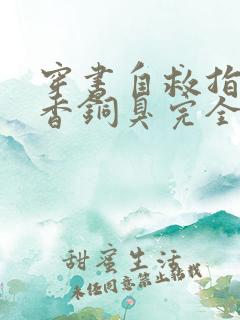 穿书自救指
香铜臭完全
甜蜜生活
未经同意禁止转载